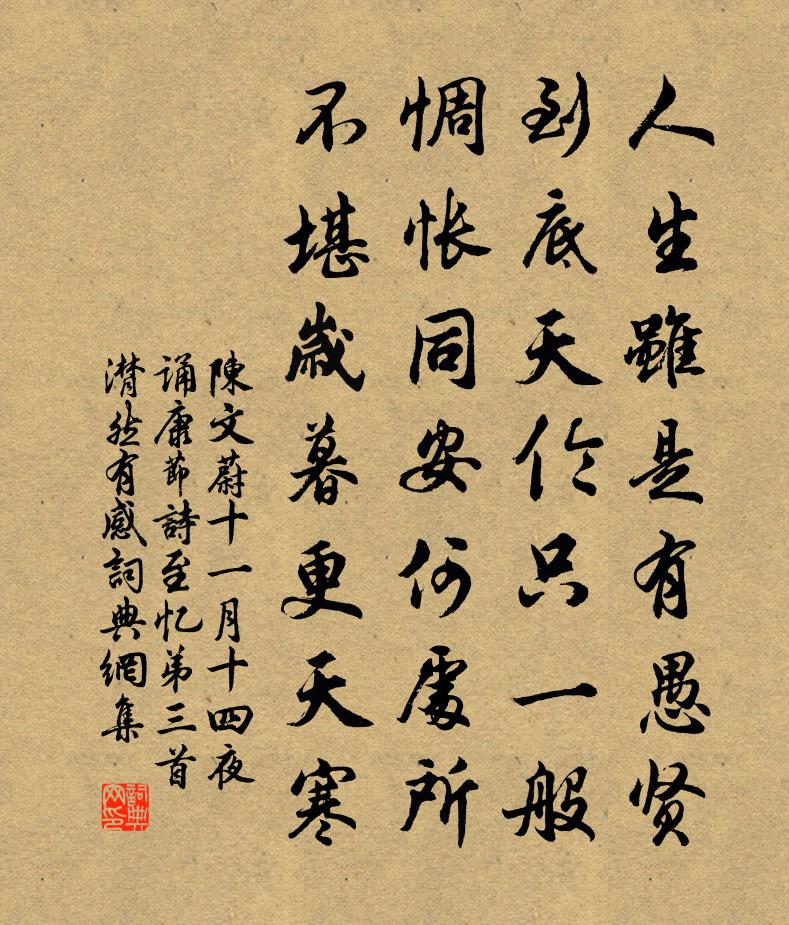 人生雖是有愚贤
到底天伦只一般
惆怅同安何處所
不堪歲暮更天寒
陳文蔚十一月十四夜
诵康節詩至忆弟三首
潸然有感詞典網集
詞典网印